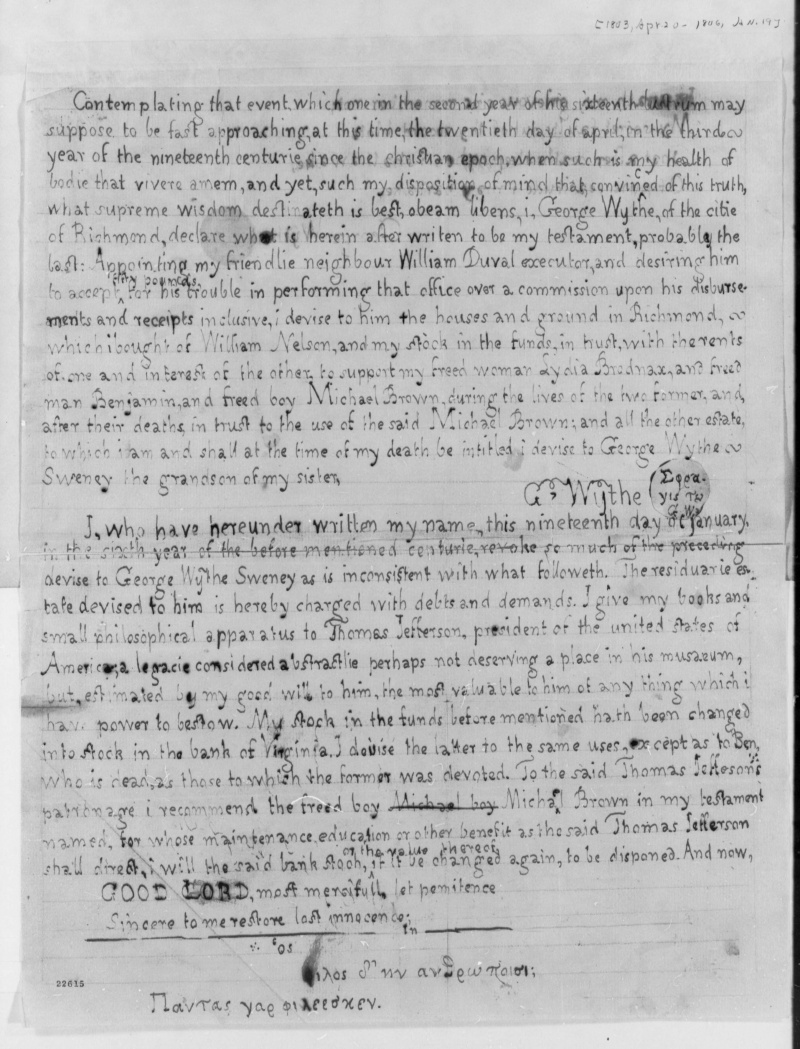 [1803, Apr 20 - 1806, Jan. 19]
Contemplating that event, which one in the second year of his sixteenth lustrum may
suppose to be fast approaching, at this time, the twentieth day of april, in the third
year of the nineteenth centurie since the christian epoch, when such is my health of
bodie that vivere amem, and yet, such my disposition of mind that, convinced of this truth,
what supreme wisdom destinateth is best, obeam libens, i, George Wythe, of the citie
of Richmond, declare what is herein after writen to be my testament, probably the
last: Appointing my friendlie neighbour William Duval executor, and desiring him
fifty pounds
to accept, for his trouble in performing that office over a commission upon his disburse-
ments and receipts inclusive, i devise to him the houses and ground in Richmond,
which i bought of William Nelson, and my stock in the funds, in trust, with the rents
of one and interest of the other, to support my freed woman Lydia Brodnax, and freed
man Benjamin, and freed boy Michael Brown, during the lives of the two former, and,
after their deaths, in trust to the use of the said Michael Brown; and all the other estate,
to which i am and shall at the time of my death be intitled i devise to George Wythe
Sweney the grandson of my sister,
G. Wythe (Σφρα-
γις τω
G. W.
I, who have hereunder written my name, this nineteenth day of january,
in the sixth year of the before mentioned centurie, revoke so much of the preceeding
devise to George Wythe Sweney as is inconsistent with what followeth. The residuarie es-
tate devised to him is hereby charged with debts and demands. I give my books and
small philosophical apparatus to Thomas Jefferson, president of the united states of
America, a legacie considered abstractlie perhaps not deserving a place in his musaeum,
but, estimated by my good will to him, the most valuable to him of any thing which i
have power to bestow. My stock in the funds before mentioned hath been changed
into stock in the bank of Virginia. I devise the latter to the same uses, except as to Ben,
who is dead, as those to which the former was devoted. To the said Thomas Jefferson's
patronage i recommend the freed boy Michael boy Michael Brown in my testament
named, for whose maintenance, education or other benefit as the said Thomas Jefferson
or the value thereof
shall direct, i will the said bank stock, if it be changed again, to be disponed. And now,
GOOD LORD, most mercifull, let penitence
Sincere to me restore lost innocence;
φιλος δ' ην ανθρωποισι;
Παντας γαρ φιλεεσκεν.
22615